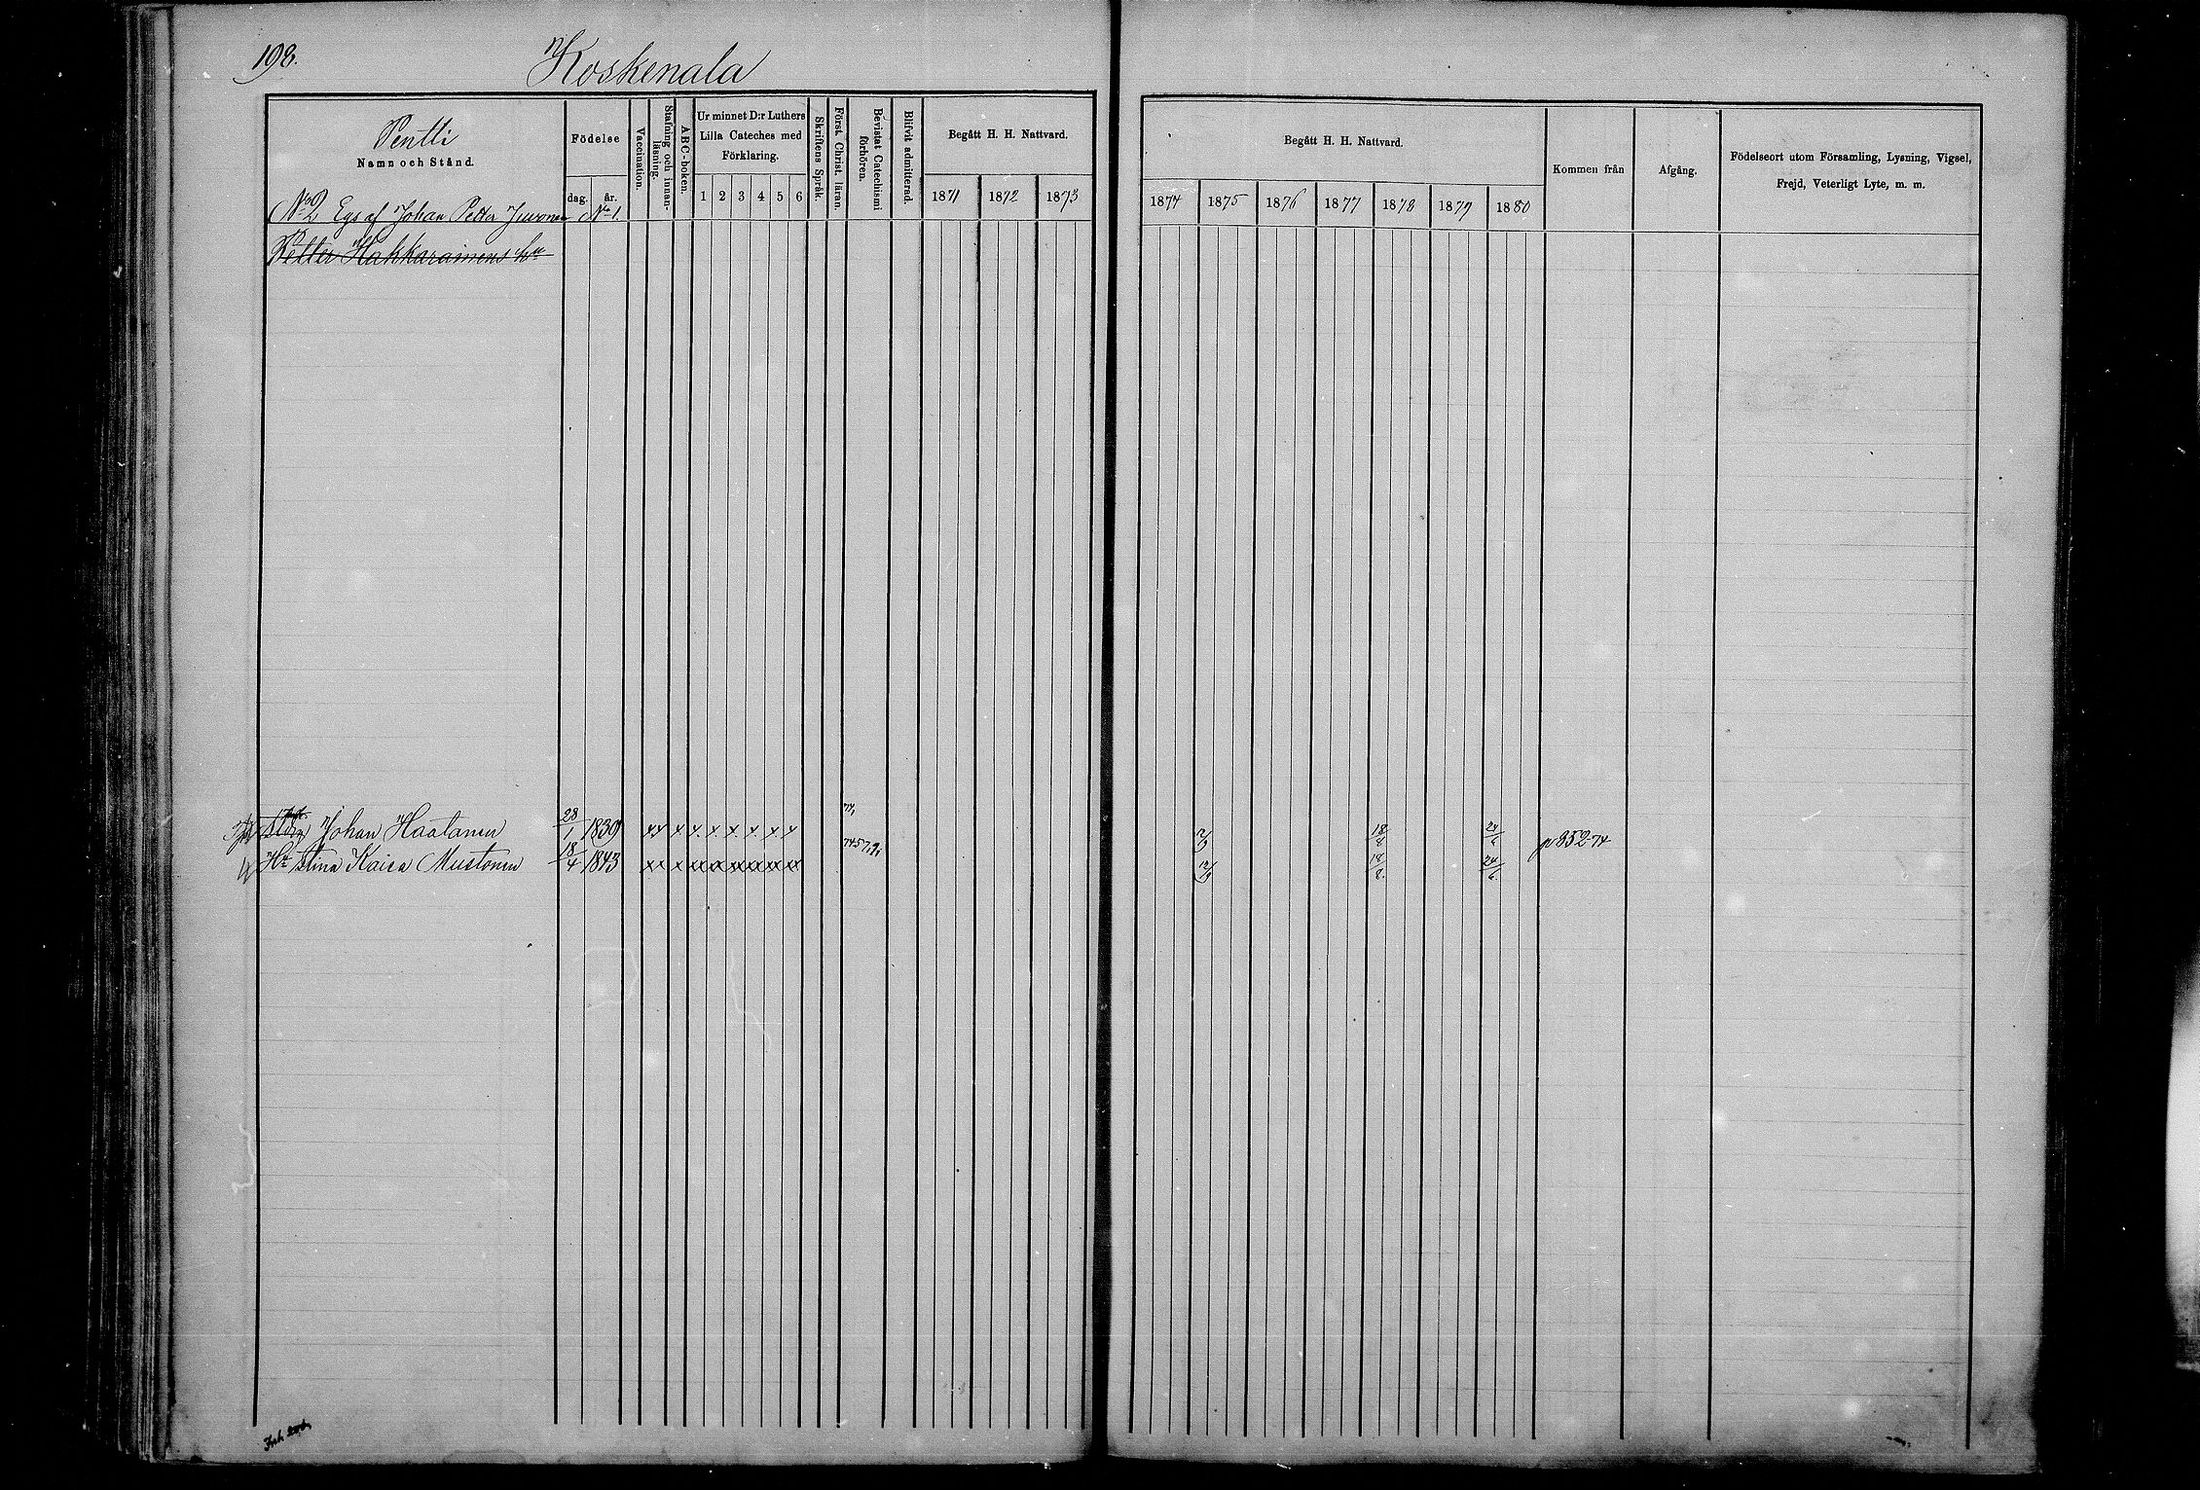 198.
Koskenala
Pentti
Namn och Stånd.
Födelse
dag.
år.
Vaccination.
Stafning och innan-
läsning.
ABC-boken.
Ur minnet D:r Luthers
Lilla Cateches med
Förklaring.
1 2 3 4 5 6
Skriftens Språk.
Först. Christ. läran.
Bevistat Catechismi
förhören.
Blifvit admitterad.
Begått H. H. Nattvard.
1871 1872 1873
Begått H. H. Nattvard.
1874 1875 1876 1877 1878 1879 1880
Kommen från
Afgång.
Födelseort utom Församling, Lysning, Vigsel,
Frejd, Veterligt Lyte, m. m.
No 2 Egs af Johan Petter Juvonen No 1.
Petter Hakkarainens
Johan Haatanen 28/1 1839 xx x x x x x x x 18/8 p 352 74
Hu Stina Kaisa Mustonen 18/4 1843 xx x xx xx xx xx xx xx 18/8. 24/6.